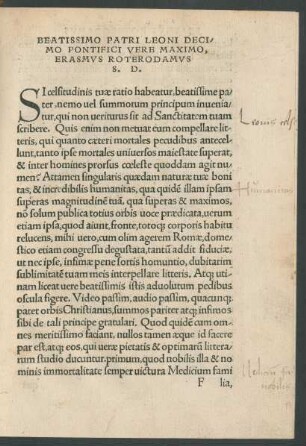 BEATISSIMO PATRI LEONI DECI/
MO PONTIFICI VERE MAXIMO,
ERASMVS ROTERODAMVS
S. D.
SI celsitudinis tuæ ratio habeatur, beatissime pa
ter, nemo uel summorum principum inuenia/
tur, qui non ueriturus sit ad Sanctitatem tuam
scribere. Quis enim non metuat eum compellare lit
teris, qui quanto cæteri mortales pecudibus antecel
lunt, tanto ipse mortales uniuersos maiestate superat,
& inter homines prorsus cœleste quoddam agit nu
men? Attamen singularis quædam naturæ tuæ boni
tas, & incredibilis humanitas, qua quidē illam ipsam
superas magnitudinē tuā, qua superas & maximos,
nō solum publica totius orbis uoce prædicata, uerum
etiam ipsa, quod aiunt, fronte, totoq; corporis habitu
relucens, mihi uero, cum olim agerem Romæ, dome/
stico etiam congressu degustata, tantū addit fiduciæ,
ut nec ipse, infimæ pene sortis homuntio, dubitarim
sublimitatē tuam meis interpellare litteris. Atq; uti
nam liceat uere beatissimis istis aduolutum pedibus
oscula figere. Video passim, audio passim, quacunq;
patet orbis Christianus, summos pariter atq; infimos
sibi de tali principe gratulari. Quod quidē cum om/
nes meritissimo faciant, nullos tamen æque id facere
par est, atq; eos, qui ueræ pietatis & optimarū littera/
rum studio ducuntur, primum, quod nobilis illa & no
minis immortalitate semper uictura Medicium fami
F lia,